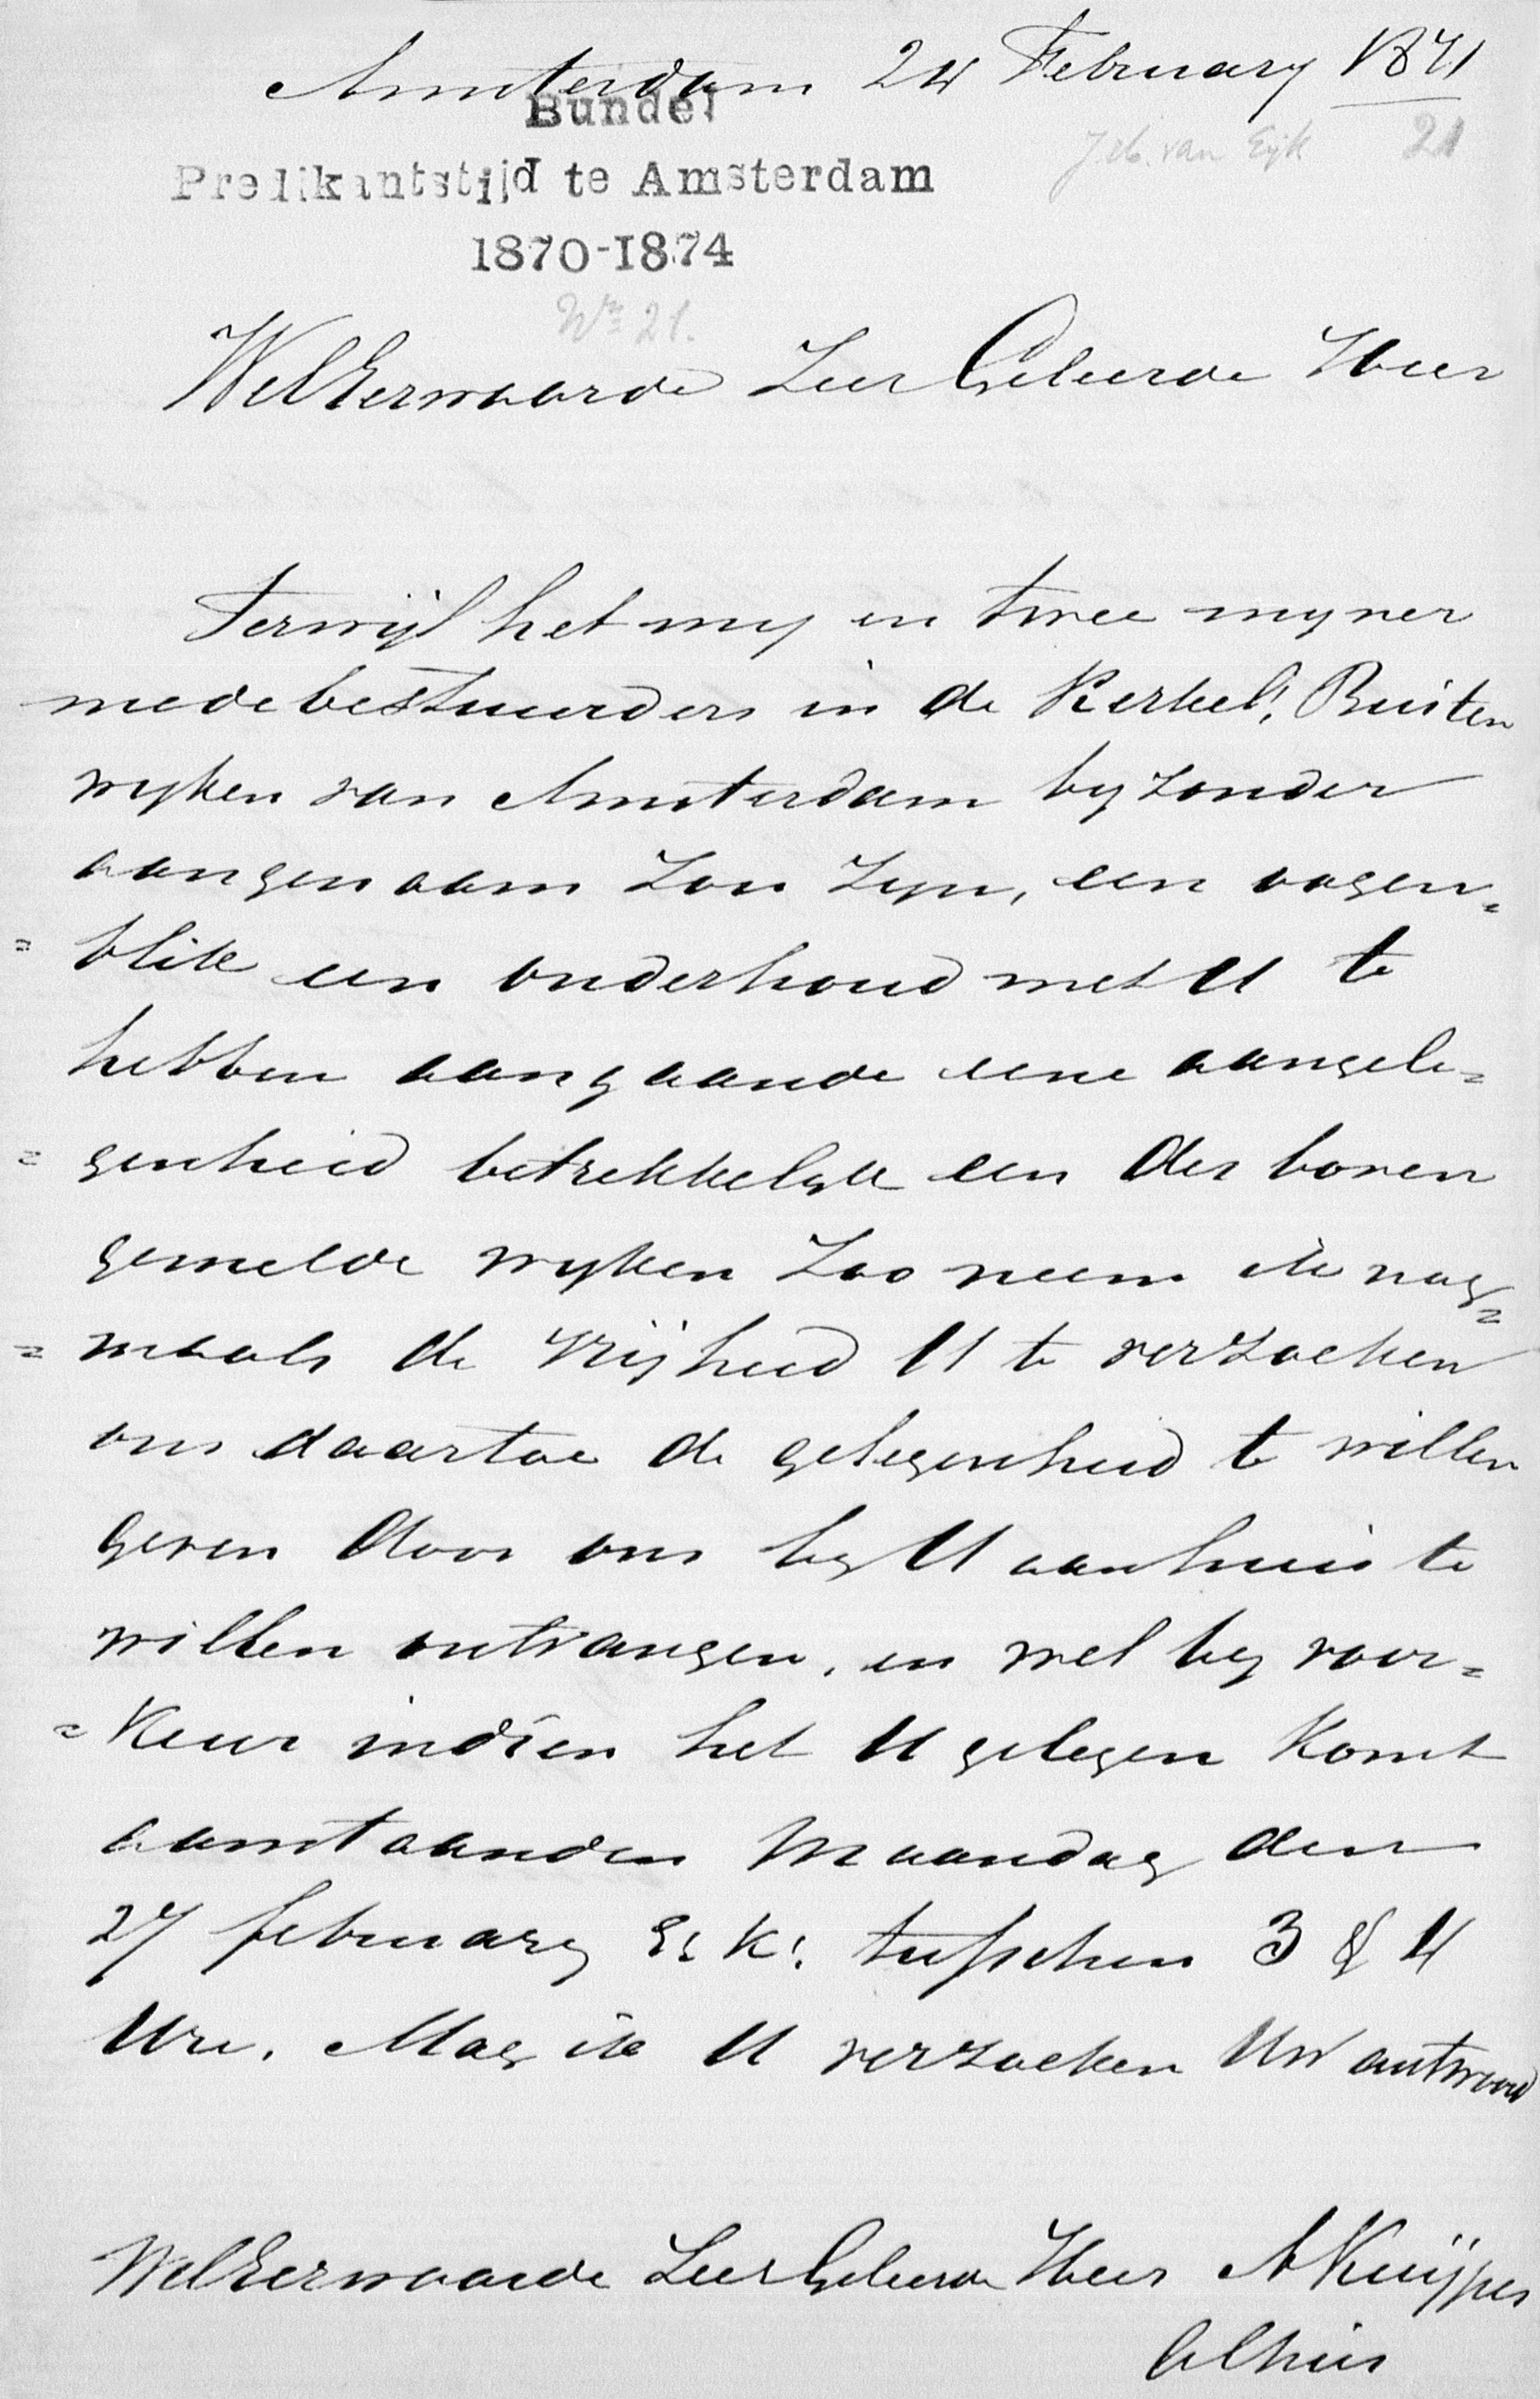 Amsterdam 24 February 1871
Bundel
J.Ab. van Eyk 21
Predikantstijd te Amsterdam
1870-1874
No 21.
WelEerwaarde ZeerGeleerde Heer
Terwijl het my en twee myner
medebestuurders in de Kerkel. Buiten
wyken van Amsterdam byzonder
aangenaam zou zyn, een oogen=
=blik een onderhoud met U te
hebben aangaande eene aangele=
=genheid betrekkelyk een der boven
gemelde wyken zoo neem ik nog=
=maals de vrijheid U te verzoeken
ons daartoe de gelegenheid te willen
geven door ons by U aan huis te
willen ontvangen, en wel by voor=
=keur indien het U gelegen komt
aanstaanden Maandag den
27 february Es. K. tusschen 3 & 4
Ure. Mag ik U verzoeken Uw antwoord
WelEerwaarde ZeerGeleerde Heer A Kuijper
Alhier